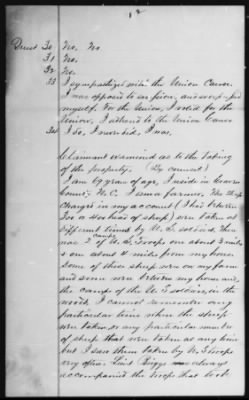 Quest 30 No. No
31 No.
32 No.
33 I sympathized with the Union Cause.
I was opposed to secession, and
myself. for the Union, I voted for the
Union, I adhered to the Union Cause
34 I do, I never did, I was.
Claimant examined as to the taking
of the property. (By counsel)
I am 69 years of age, I reside in Craven
County, N.C. I am a farmer. The sheep
charged in my account (this
for a 40 head of sheep) were taken at
different times by U.S. soldiers, there
was 2 camps of U.S. Troops one about 3 miles
& one about 4 miles from my house
Some of these sheep were on my farm
and some were between my house and
the camp of the U.S. soldiers, in the
woods. I cannot remember any
particular time when the sheep
were taken, or any particular number
of sheep that were taken at any time
but I saw them taken by U.S. Troops
any officer Lieut Biggs always
accompanied the troops that took